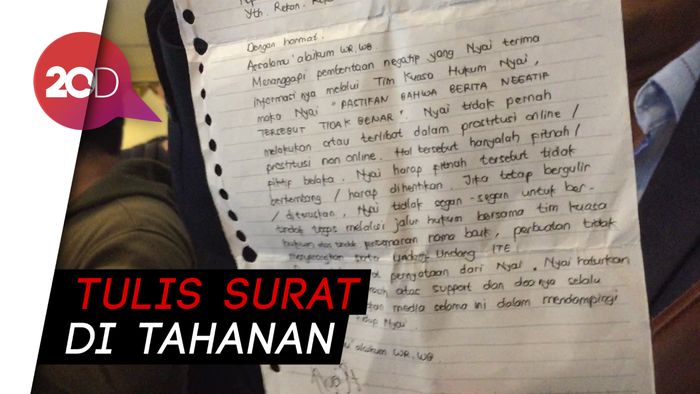 Yth. Rekan
Dengan hormat.
Assalamu'alaikum WR.WB
Menanggapi pemberitaan negatif yang Nyai terima
informasinya melalui Tim Kuasa Hukum Nyai,
maka Nyai "PASTIKAN BAHWA BERITA NEGATIF
TERSEBUT TIDAK BENAR". Nyai tidak pernah
melakukan atau terlibat dalam prostitusi online /
prostitusi non online. Hal tersebut hanyalah fitnah /
fiktif belaka. Nyai harap fitnah tersebut tidak
berkembang / harap dihentikan. Jika tetap bergulir
/ diteruskan, Nyai tidak segan-segan untuk ber-
tindak tegas melalui jalur hukum bersama tim kuasa
hukum atas tindak pencemaran nama baik, perbuatan tidak
menyenangkan serta Undang Undang ITE.
pernyataan dari Nyai. Nyai haturkan
atas support dan doanya selalu
media selama ini dalam mendampingi
hidup Nyai.
alaikum WR.WB
20D
TULIS SURAT
DI TAHANAN